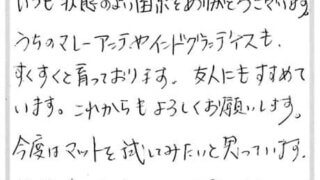 いつも状態のよい固体をありがとうございます。
うちのマレーアンテやインドグランディスも、
すくすくと育っております。友人にもすすめて
います。これからもよろしくお願いします。
今度はマットを試してみたいと思っています。